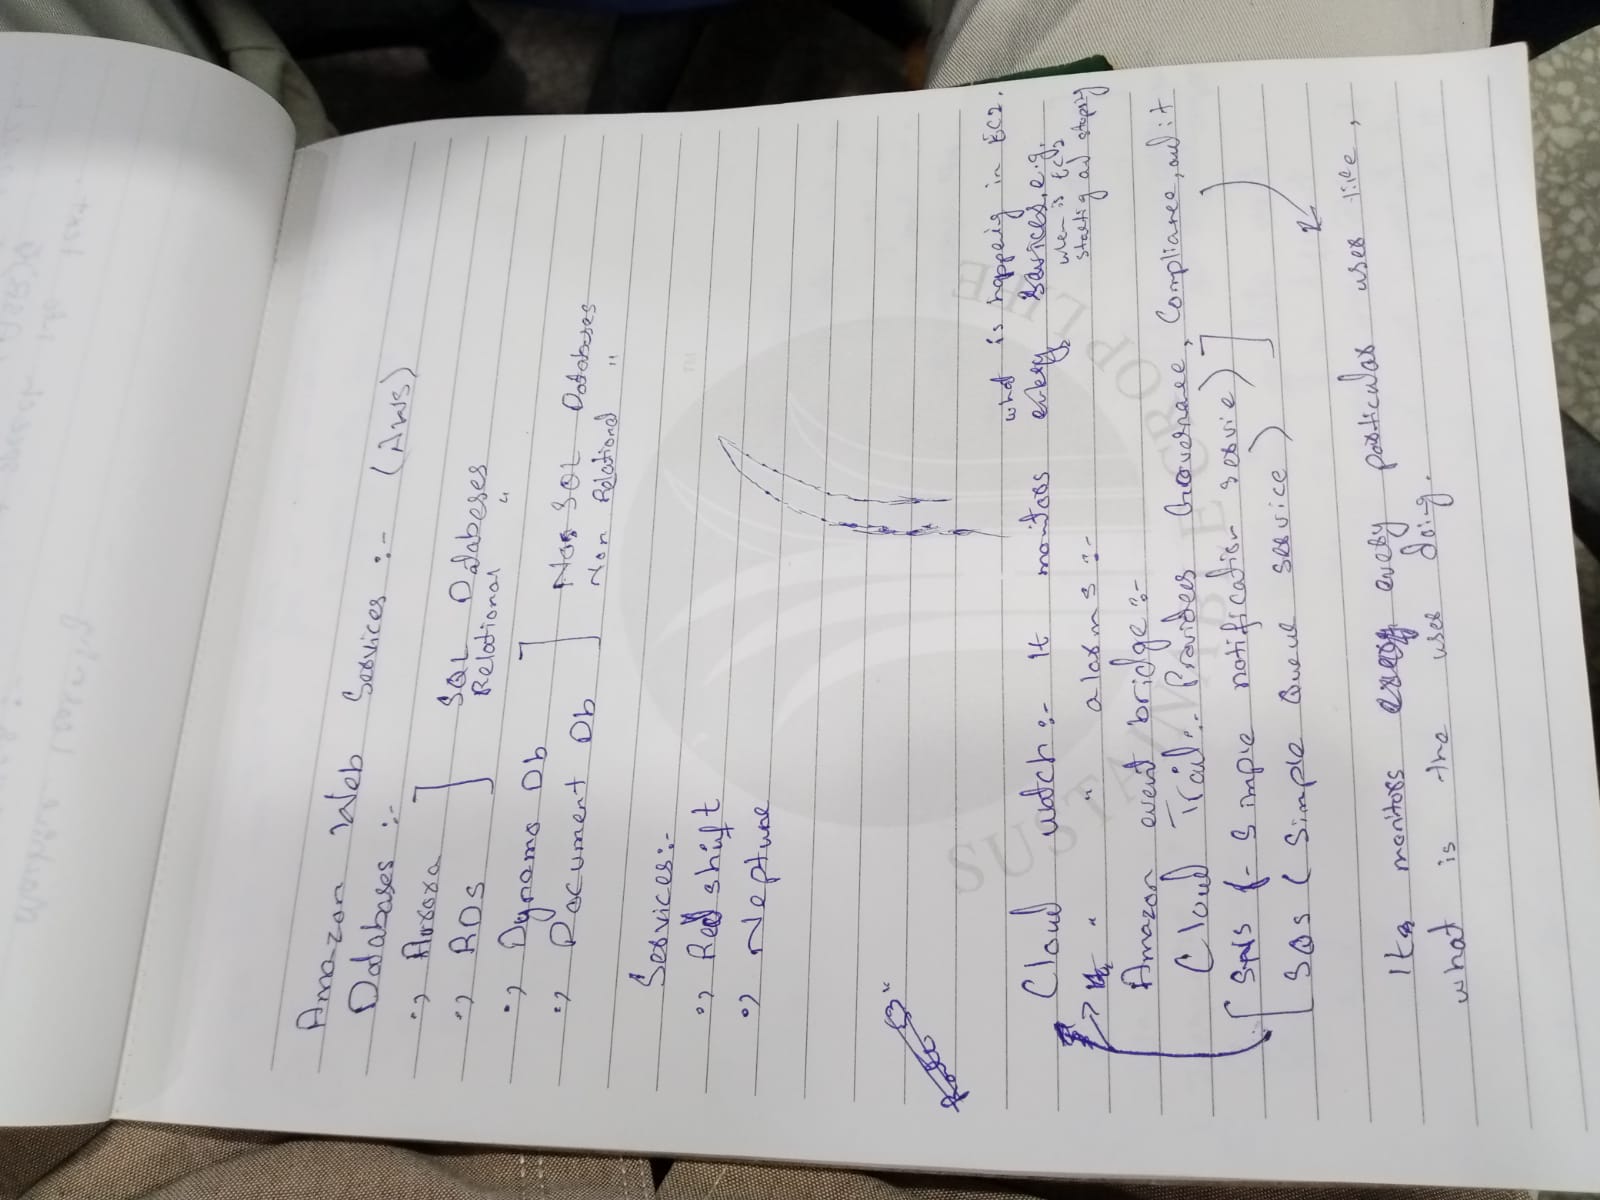 Amazon Web Services :- (AWS)
Databases :-
Aurora
RDS
SQL Databases
Relational "
Dynamo Db
Document Db
SQL Databases
Non Relational "
Services:-
Redshift
Neptune
Cloud watch:- It monitors every services, e.g.
what is happeig in EC2.
when is EC2
startig ad stopig
" " alarms :-
Amazon event bridge:-
Cloud Trail:- Provides Governance, Compliance, audit
SNS (- Simple notification servie)
SQS ( Simple Queue service )
Its monitors every particular user like,
what is the user doing.
SUSTAIN